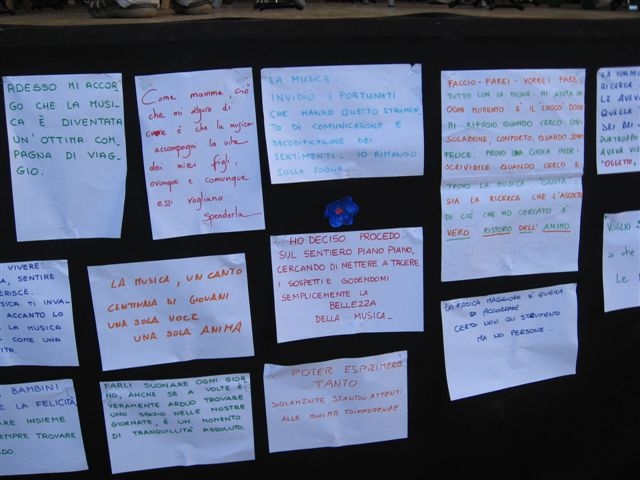 ADESSO MI ACCOR-
GO CHE LA MUSI-
CA È DIVENTATA
UN'OTTIMA COM-
PAGNA DI VIAG-
GIO.
Come mamma, ciò
che mi auguro di
cuore è che la musica
accompagni la vita
dei miei figli,
ovunque e comunque
essi vogliano
spenderla
LA MUSICA:
INVIDIO I FORTUNATI
CHE HANNO QUESTO STRUMEN-
TO DI COMUNICAZIONE E
DECODIFICAZIONE DEI
SENTIMENTI. IO RIMANGO
SULLA SOGLIA...
FACCIO - FAREI - VORREI FARE
TUTTO CON LA MUSICA: MI AIUTA IN
OGNI MOMENTO. E' IL "LUOGO" DOVE
MI RIFUGIO QUANDO CERCO CON-
SOLAZIONE, CONFORTO, QUANDO SONO
FELICE. PROVO UNA GIOIA INDE-
SCRIVIBILE QUANDO CERCO E
TROVO LA MUSICA "GIUSTA".
SIA LA RICERCA CHE L'ASCOLTO
DI CIÒ CHE HO CERCATO E'
VERO RISTORO DELL'ANIMO
RICERCA
LE AVEV
QUELLA
DEI BEI
PURTROPPO
AVEVA VIS
"OGGETTO,
VIVERE:
SENTIRE
ERISCE.
MUSICA TI INVA-
ACCANTO LO
LA MUSICA
COME UNA
ITA.
LA MUSICA, UN CANTO
CENTINAIA DI GIOVANI
UNA SOLA VOCE
UNA SOLA ANIMA
HO DECISO. PROCEDO
SUL SENTIERO PIANO PIANO,
CERCANDO DI METTERE A TACERE
I SOSPETTI E GODENDOMI
SEMPLICEMENTE LA
BELLEZZA
DELLA MUSICA_
LA FATICA MAGGIORE È QUELLA
DI ACCORDARE
CERTO NON GLI STRUMENTI
MA NOI PERSONE...
VOGLIO
che
Le
BAMBINI
E LA FELICITÀ
ARE INSIEME
EMPRE TROVARE
DO.
FARLI SUONARE OGNI GIOR-
NO, ANCHE SE A VOLTE È
VERAMENTE ARDUO TROVARE
UNO SPAZIO NELLE NOSTRE
GIORNATE, È UN MOMENTO
DI TRANQUILLITÀ ASSOLUTO.
POTER ESPRIMERE
TANTO
SOLAMENTE STANDO ATTENTI
ALLE MINIME DIFFERENZE.